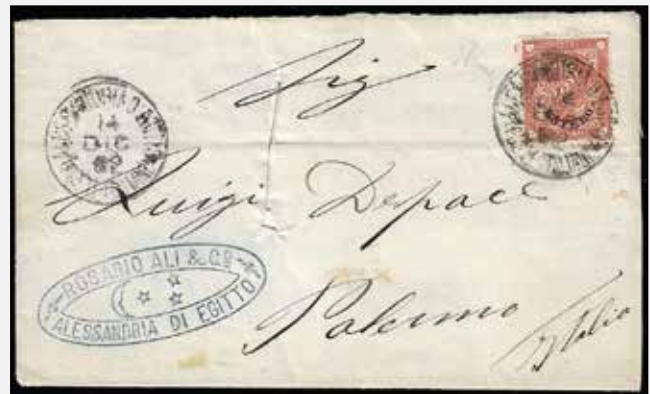 Sig
14
DIC
82
Luigi Depace
ROSARIO ALI & Cº
ALESSANDRIA DI EGITTO
Palermo
Italia